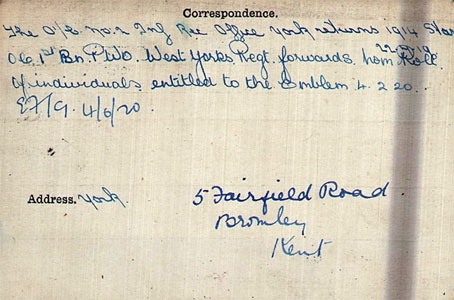 Correspondence.
The O i/c No. 2 Inf Rec Office York returns 1914 Star
O.C. 1st Bn. P.W.O. West Yorks Regt. forwards nom Roll 22.12.19
Of individuals entitled to the Emblem 4.2.20.
E7/9. 4/6/20.
Address. York.
5 Fairfield Road
Bromley
Kent